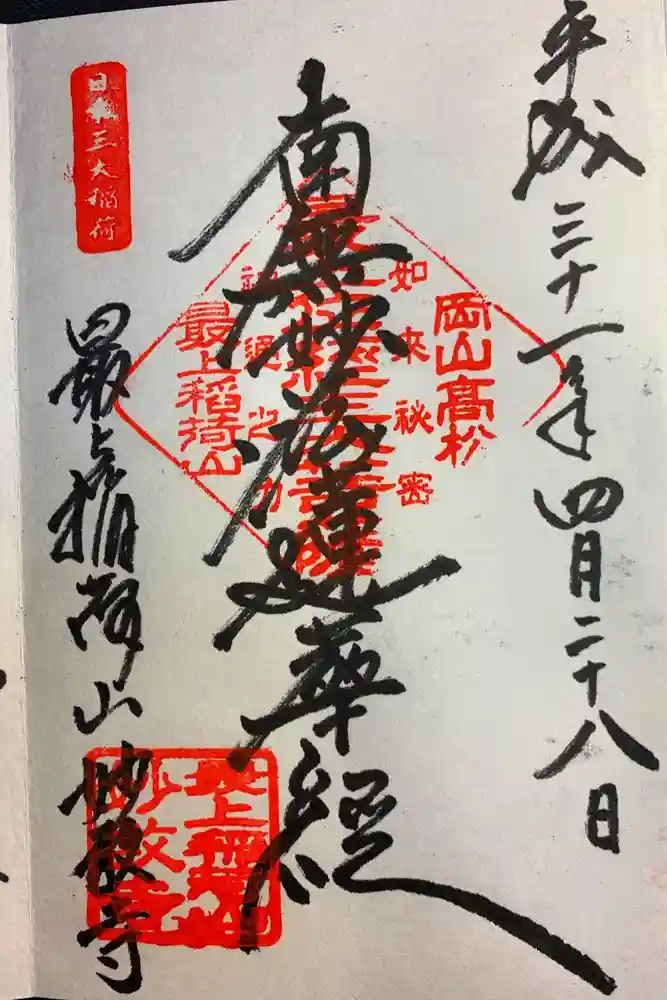 平成三十一年四月二十八日
岡山高松
如来秘密
南無妙法蓮華経
最上稲荷山
日本三大稲荷
最上稲荷山妙教寺
最上稲荷山
妙教寺